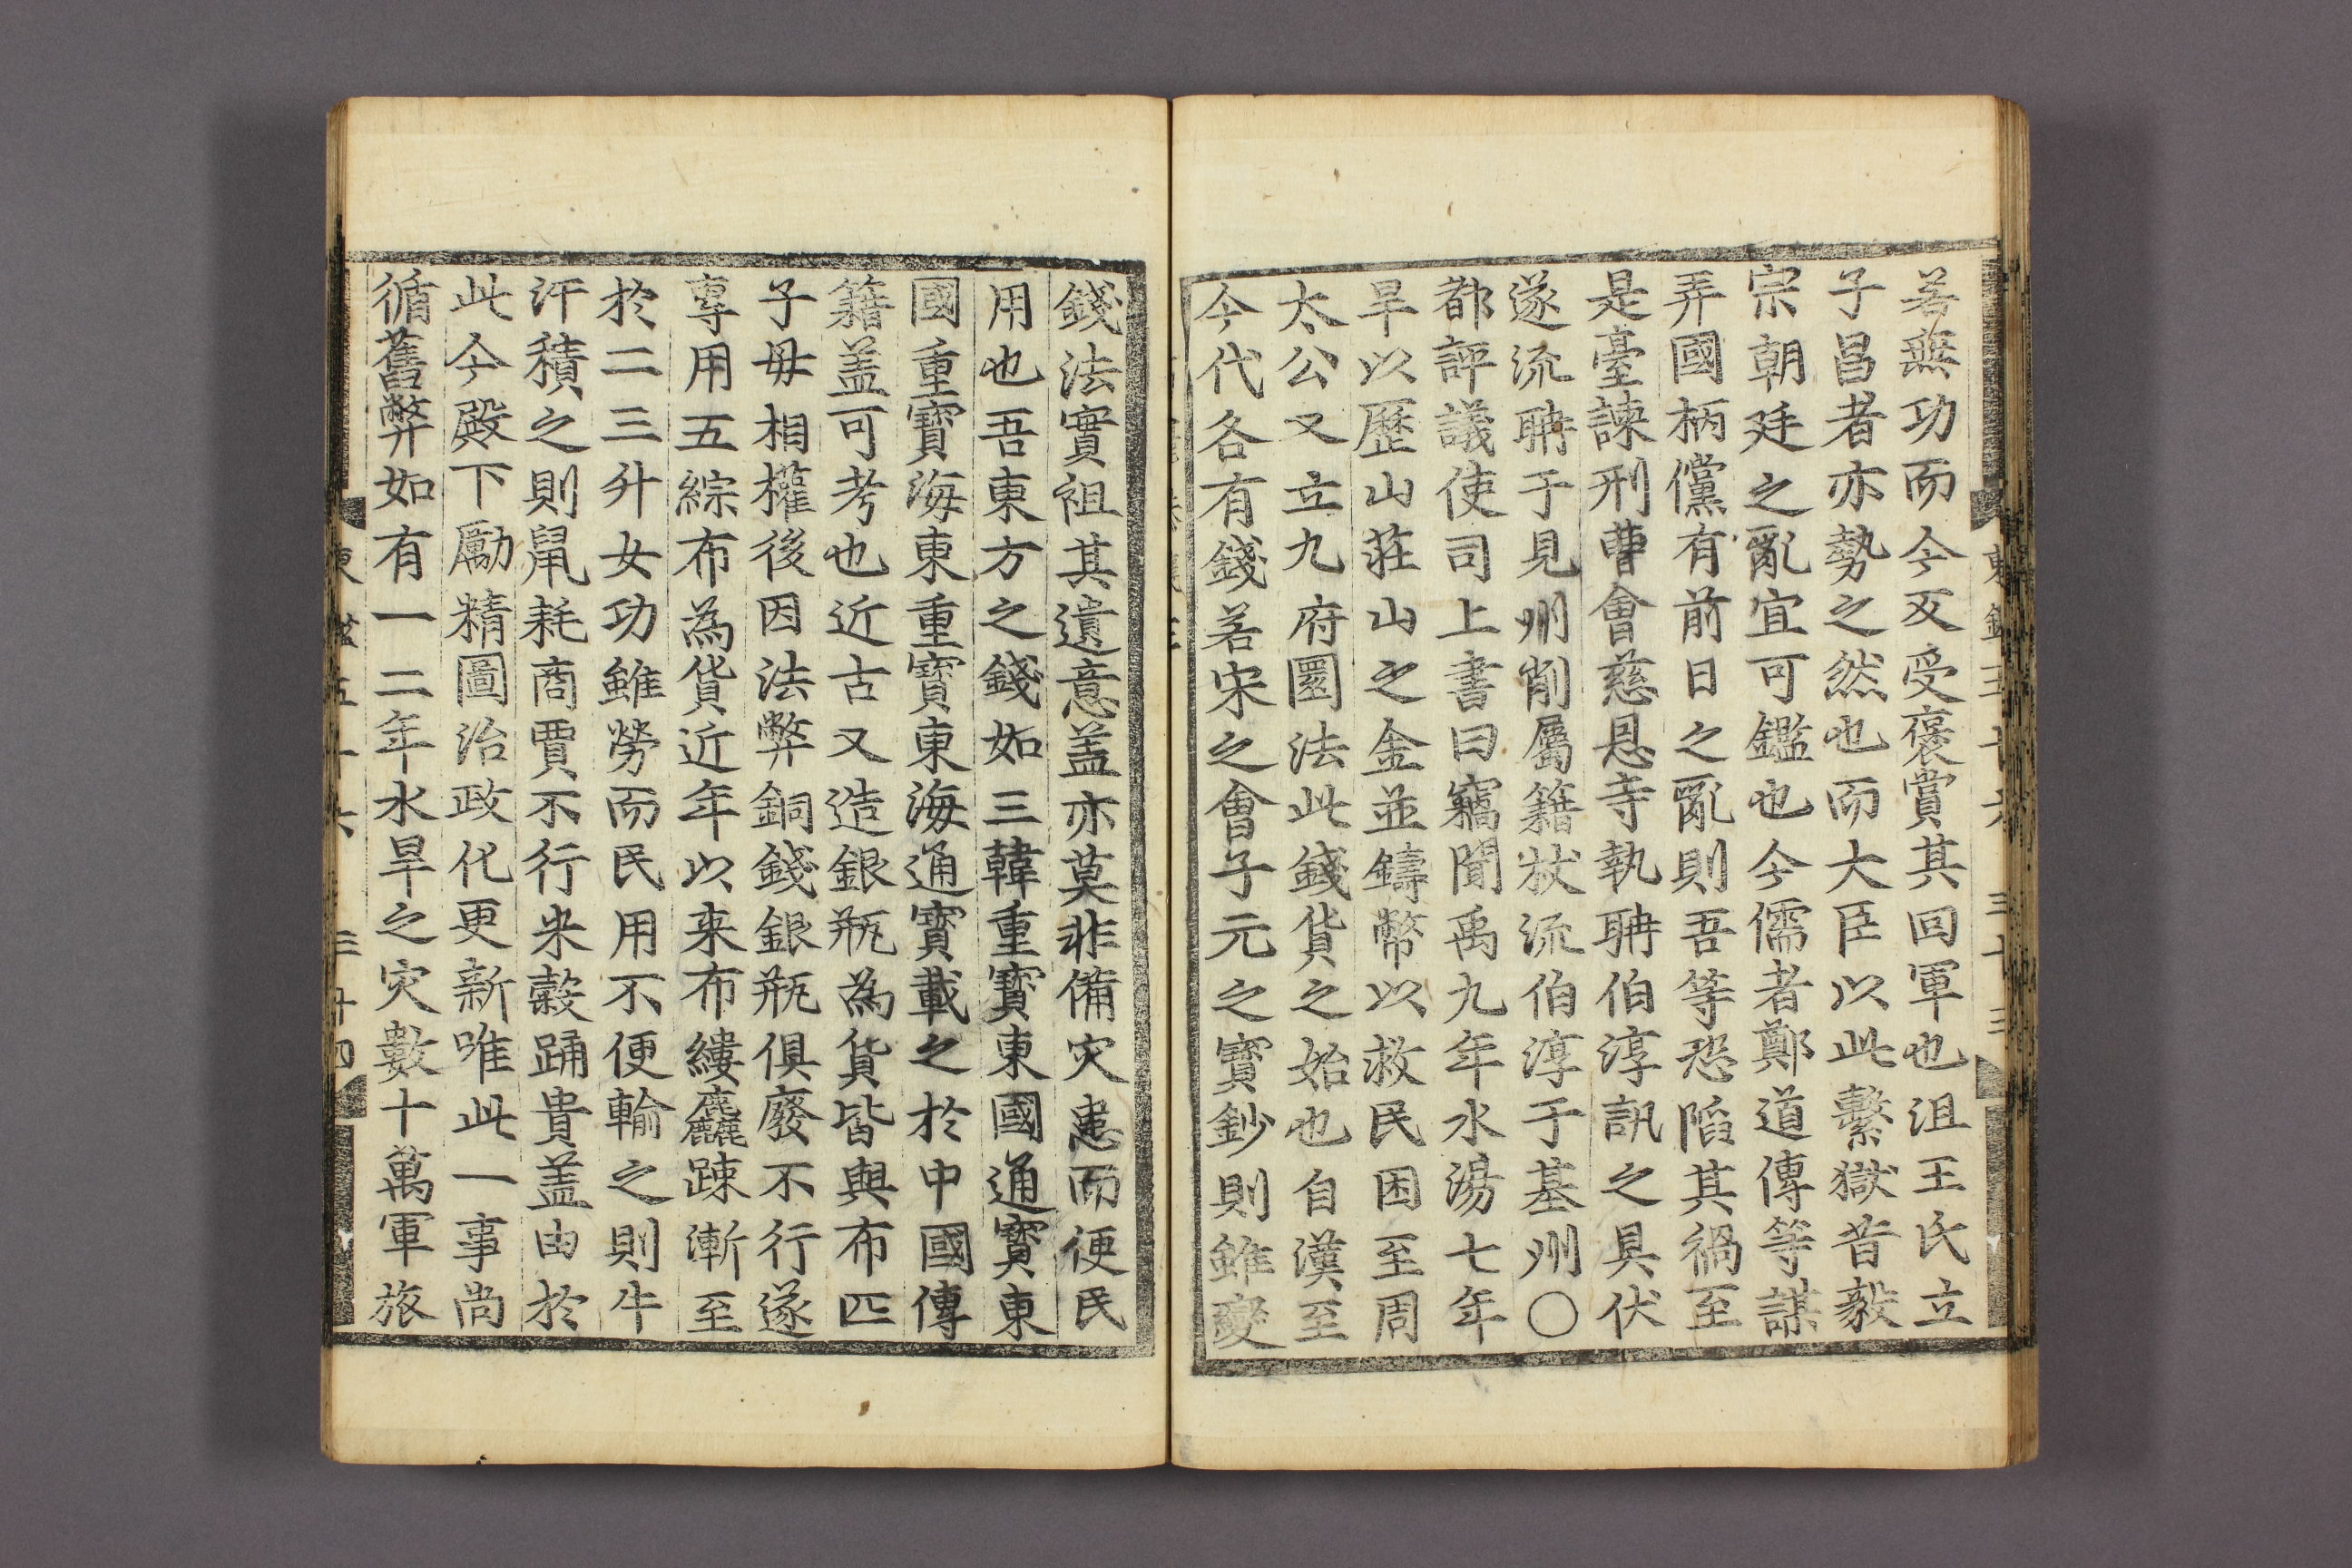 若無功而今又受褒賞其回軍也沮王氏立
子昌者亦勢之然也而大臣以此繫獄昔毅
宗朝廷之亂宜可鑑也今儒者鄭道傳等謀
弄國柄儻有前日之亂則吾等恐陷其禍至
是臺諫刑曹會慈恩寺執聃伯淳訊之具伏
遂流聃于見州削屬籍杖流伯淳于基州〇
都評議使司上書曰竊聞禹九年水湯七年
旱以歷山莊山之金並鑄幣以救民困至周
太公又立九府圜法此錢貨之始也自漢至
今代各有錢若宋之會子元之寶鈔則雖變
錢法實祖其遺意盖亦莫非備灾患而便民
用也吾東方之錢如三韓重寶東國通寶東
國重寶海東重寶東海通寶載之於中國傳
籍盖可考也近古又造銀瓶為貨皆與布匹
子毋相權後因法弊銅錢銀瓶俱廢不行遂
專用五綜布為貨近年以来布縷麤踈漸至
於二三升女功雖勞而民用不便輸之則牛
汗積之則鼠耗商賈不行米穀踊貴盖由於
此今殿下勵精圖治政化更新唯此一事尚
循舊弊如有一二年水旱之灾數十萬軍旅